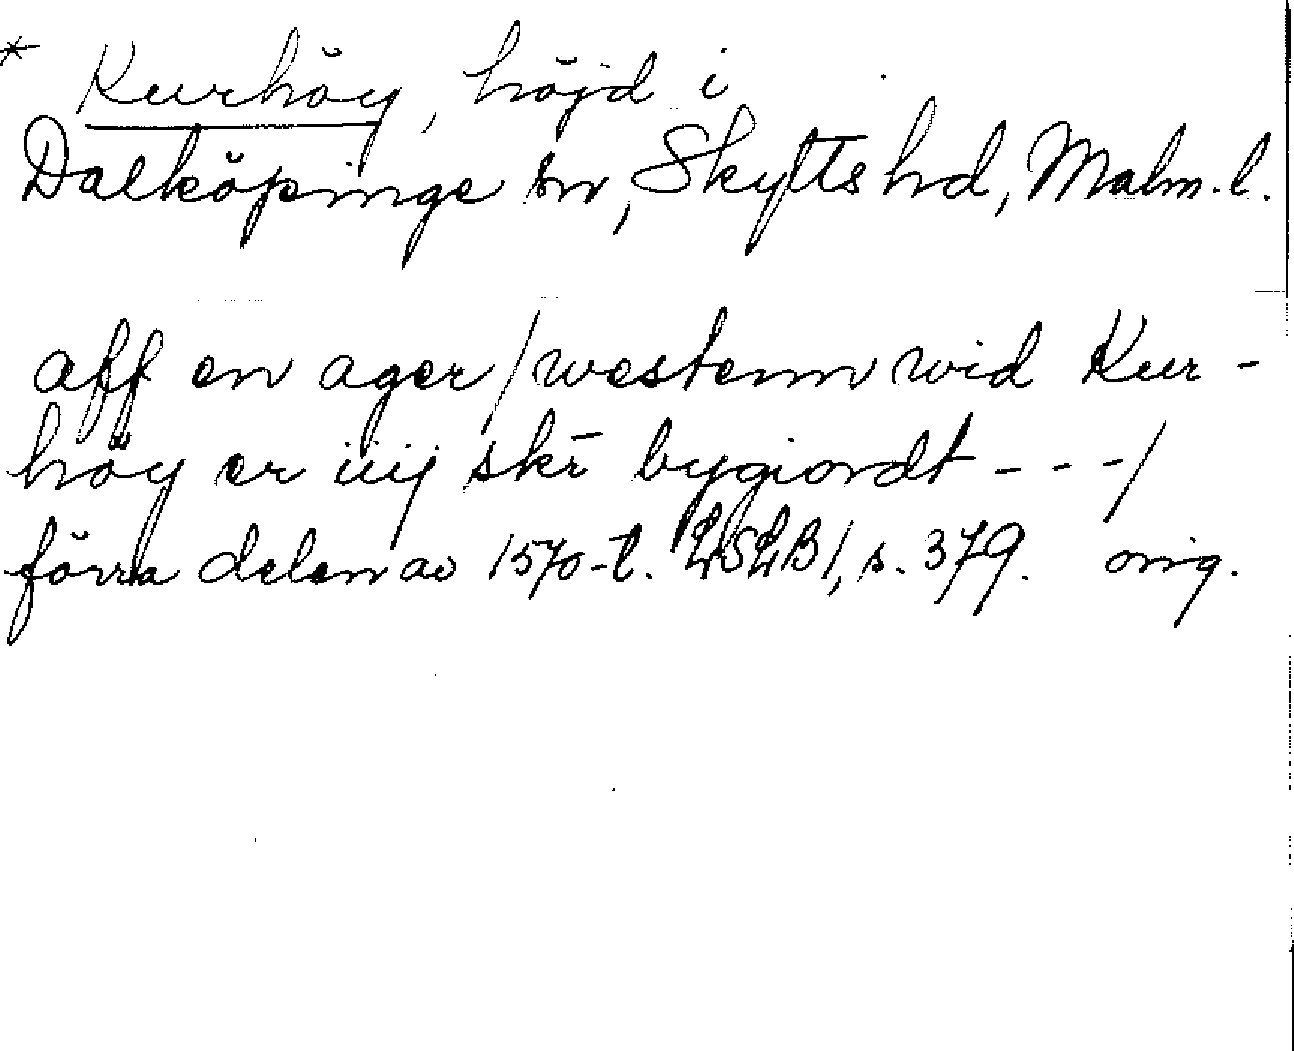 * Kurhöy, höjd i
Dalköpinge sn, Skytts hd, Malm. l.
aff en ager / westenn wid Kur-
höy er iiij skr̄ bygiordt - - - /
förra delen av 1570-t. LSLB 1, s. 379. orig.